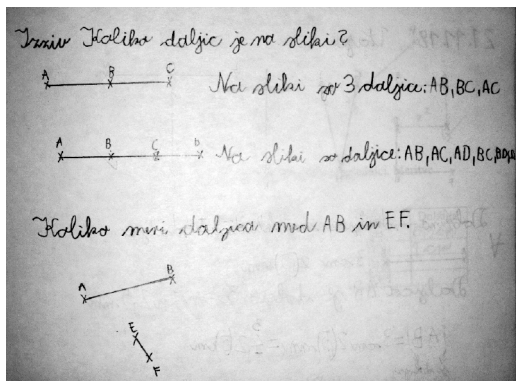 Izziv Koliko daljic je na sliki?
A B C Na sliki so 3 daljice: AB, BC, AC
A B C D Na sliki so daljice: AB, AC, AD, BC, BD,
Koliko meri daljica med AB in EF.
A B
E
F